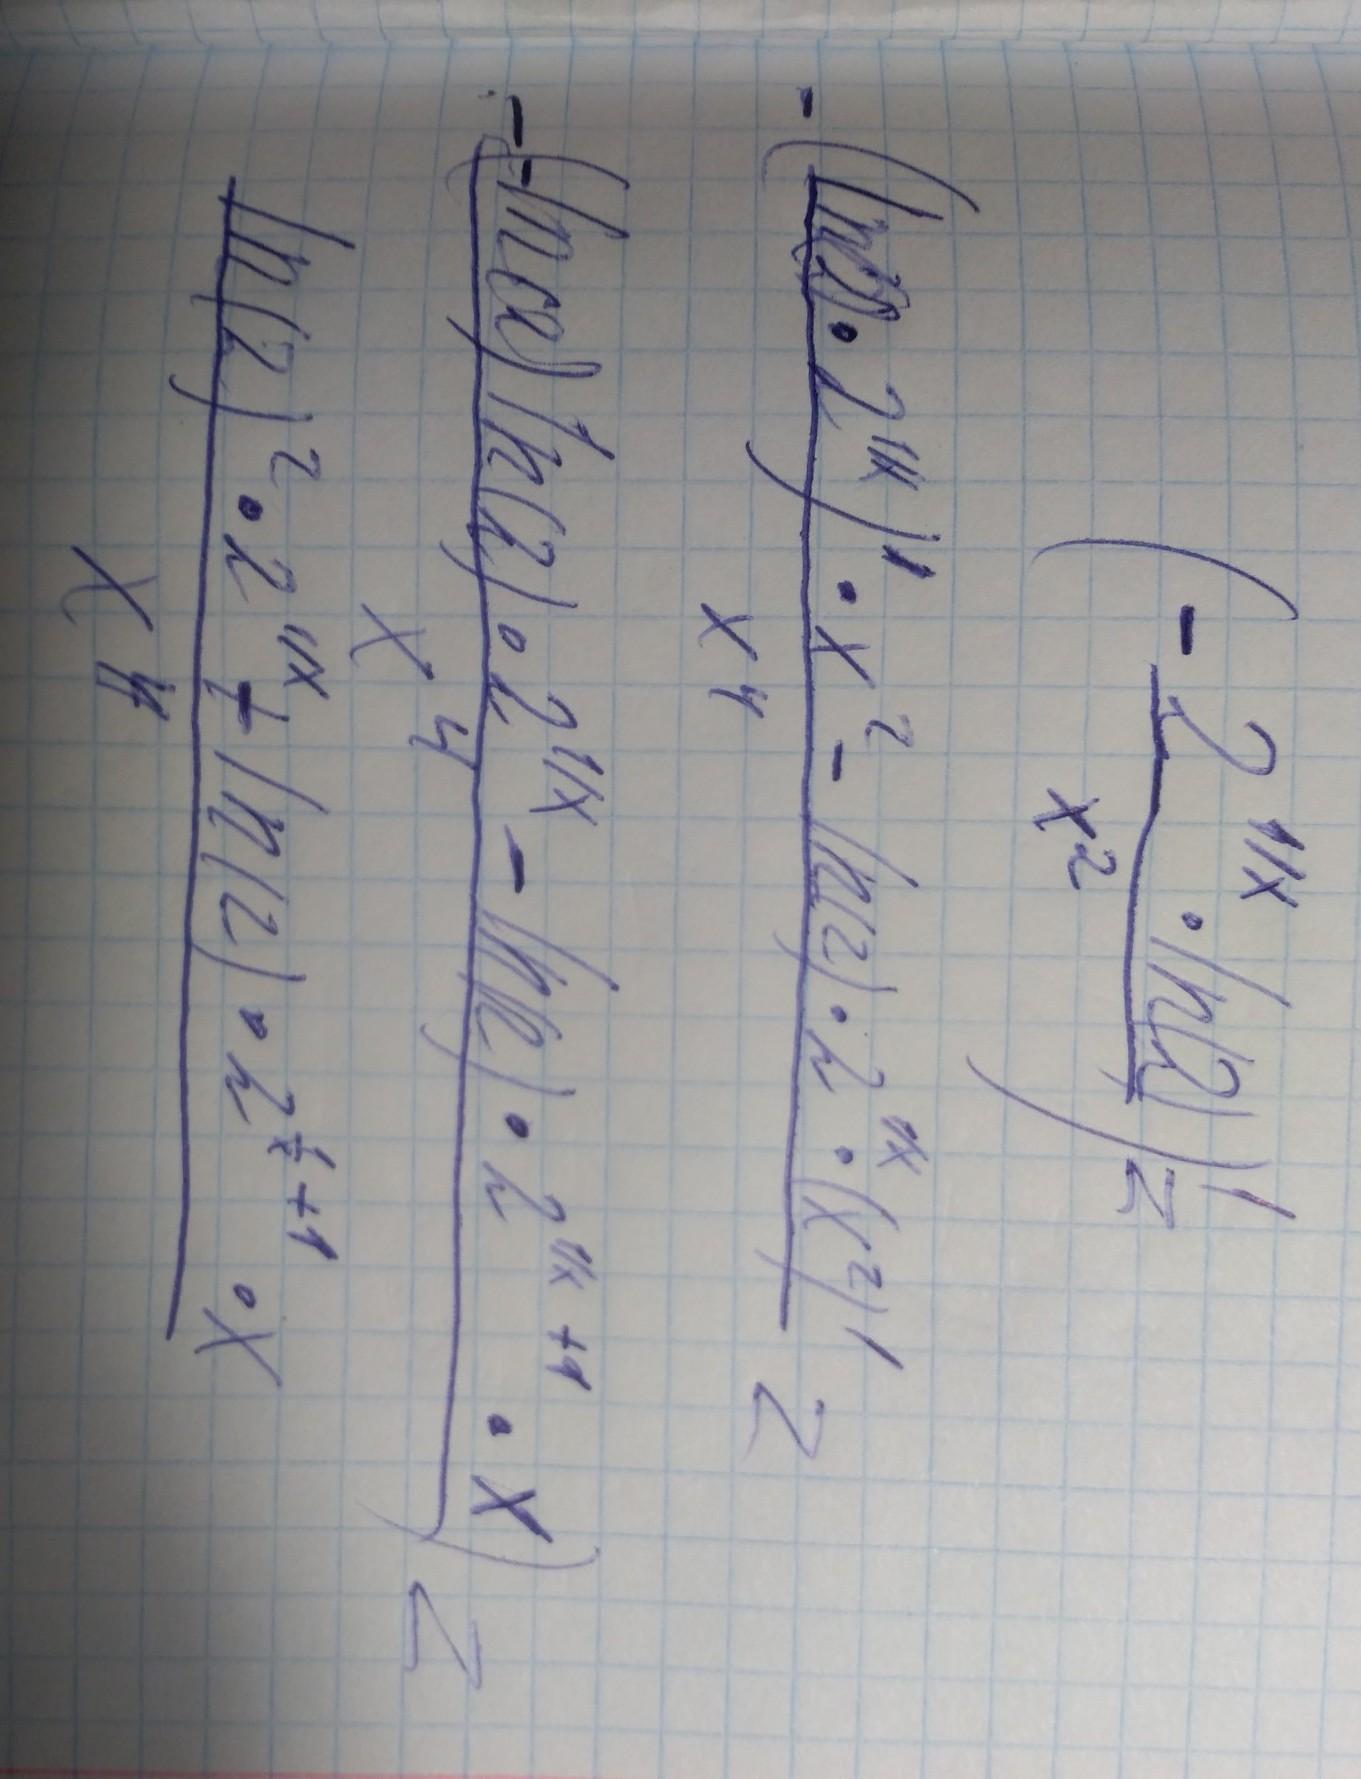 (- 2^{1/x} · ln(2) / x^2)' =
- ((ln(2) · 2^{1/x})' · x^2 - ln(2) · 2^{1/x} · (x^2)') / x^4 =
- (-ln(2) ln(2) · 2^{1/x} - ln(2) · 2^{1/x +1} · x) / x^4 =
ln(2)^2 · 2^{1/x} + ln(2) · 2^{1/x +1} · x / x^4